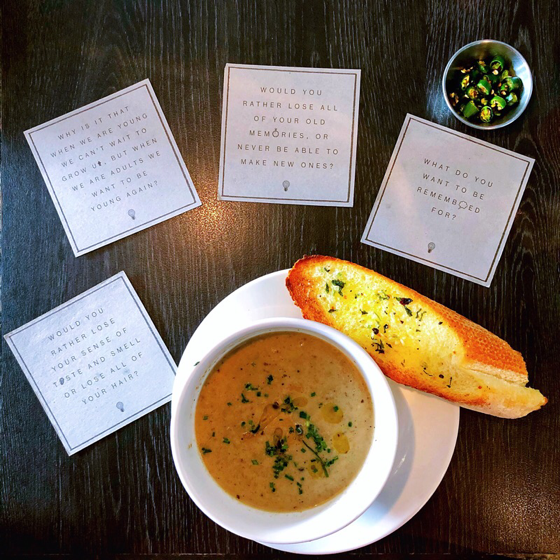 WHY IS IT THAT
WHEN WE ARE YOUNG
WE CAN'T WAIT TO
GROW UP, BUT WHEN
WE ARE ADULTS WE
WANT TO BE
YOUNG AGAIN?
WOULD YOU
RATHER LOSE ALL
OF YOUR OLD
MEMORIES, OR
NEVER BE ABLE TO
MAKE NEW ONES?
WHAT DO YOU
WANT TO BE
REMEMBERED
FOR?
WOULD YOU
RATHER LOSE
YOUR SENSE OF
TASTE AND SMELL
OR LOSE ALL OF
YOUR HAIR?